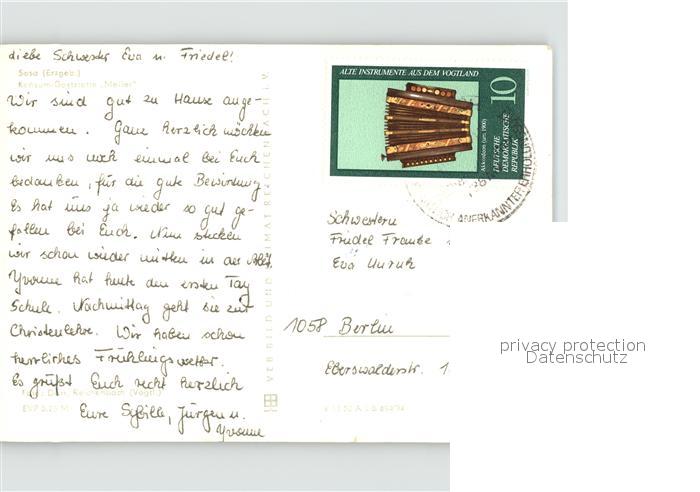 Liebe Schwester Eva u. Friedel!
Sosa (Erzgeb.)
Konsum-Gaststätte „Meiler"
Wir sind gut zu Hause ange-
kommen. Ganz herzlich möchten
wir uns noch einmal bei Euch
bedanken, für die gute Bewirtung
Es hat uns ja wieder so gut ge-
fallen bei Euch. Nun stecken
wir schon wieder mitten in der Arbeit.
Yvonne hat heute den ersten Tag
Schule. Nachmittag geht sie zur
Christenlehre. Wir haben schon
herrliches Frühlingswetter.
Es grüßt Euch recht herzlich
Eure Sybille, Jürgen u.
Yvonne
Reichenbach (Vogtl.)
VERLAG BILD UND HEIMAT REICHENBACH i. V.
ALTE INSTRUMENTE AUS DEM VOGTLAND
10
Akkordeon (um 1900)
DEUTSCHE
DEMOKRATISCHE
REPUBLIK
ANERKANNTER ERHOLUN
Schwestern
Friedel Franke
Eva Unruh
1058 Berlin
Eberswalderstr. 1
privacy protection
Datenschutz